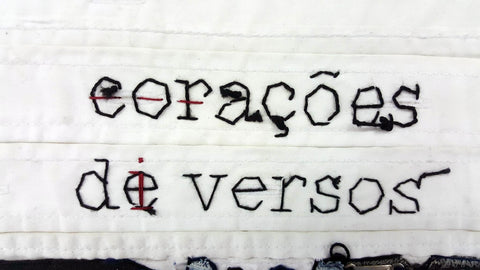 corações
de versos